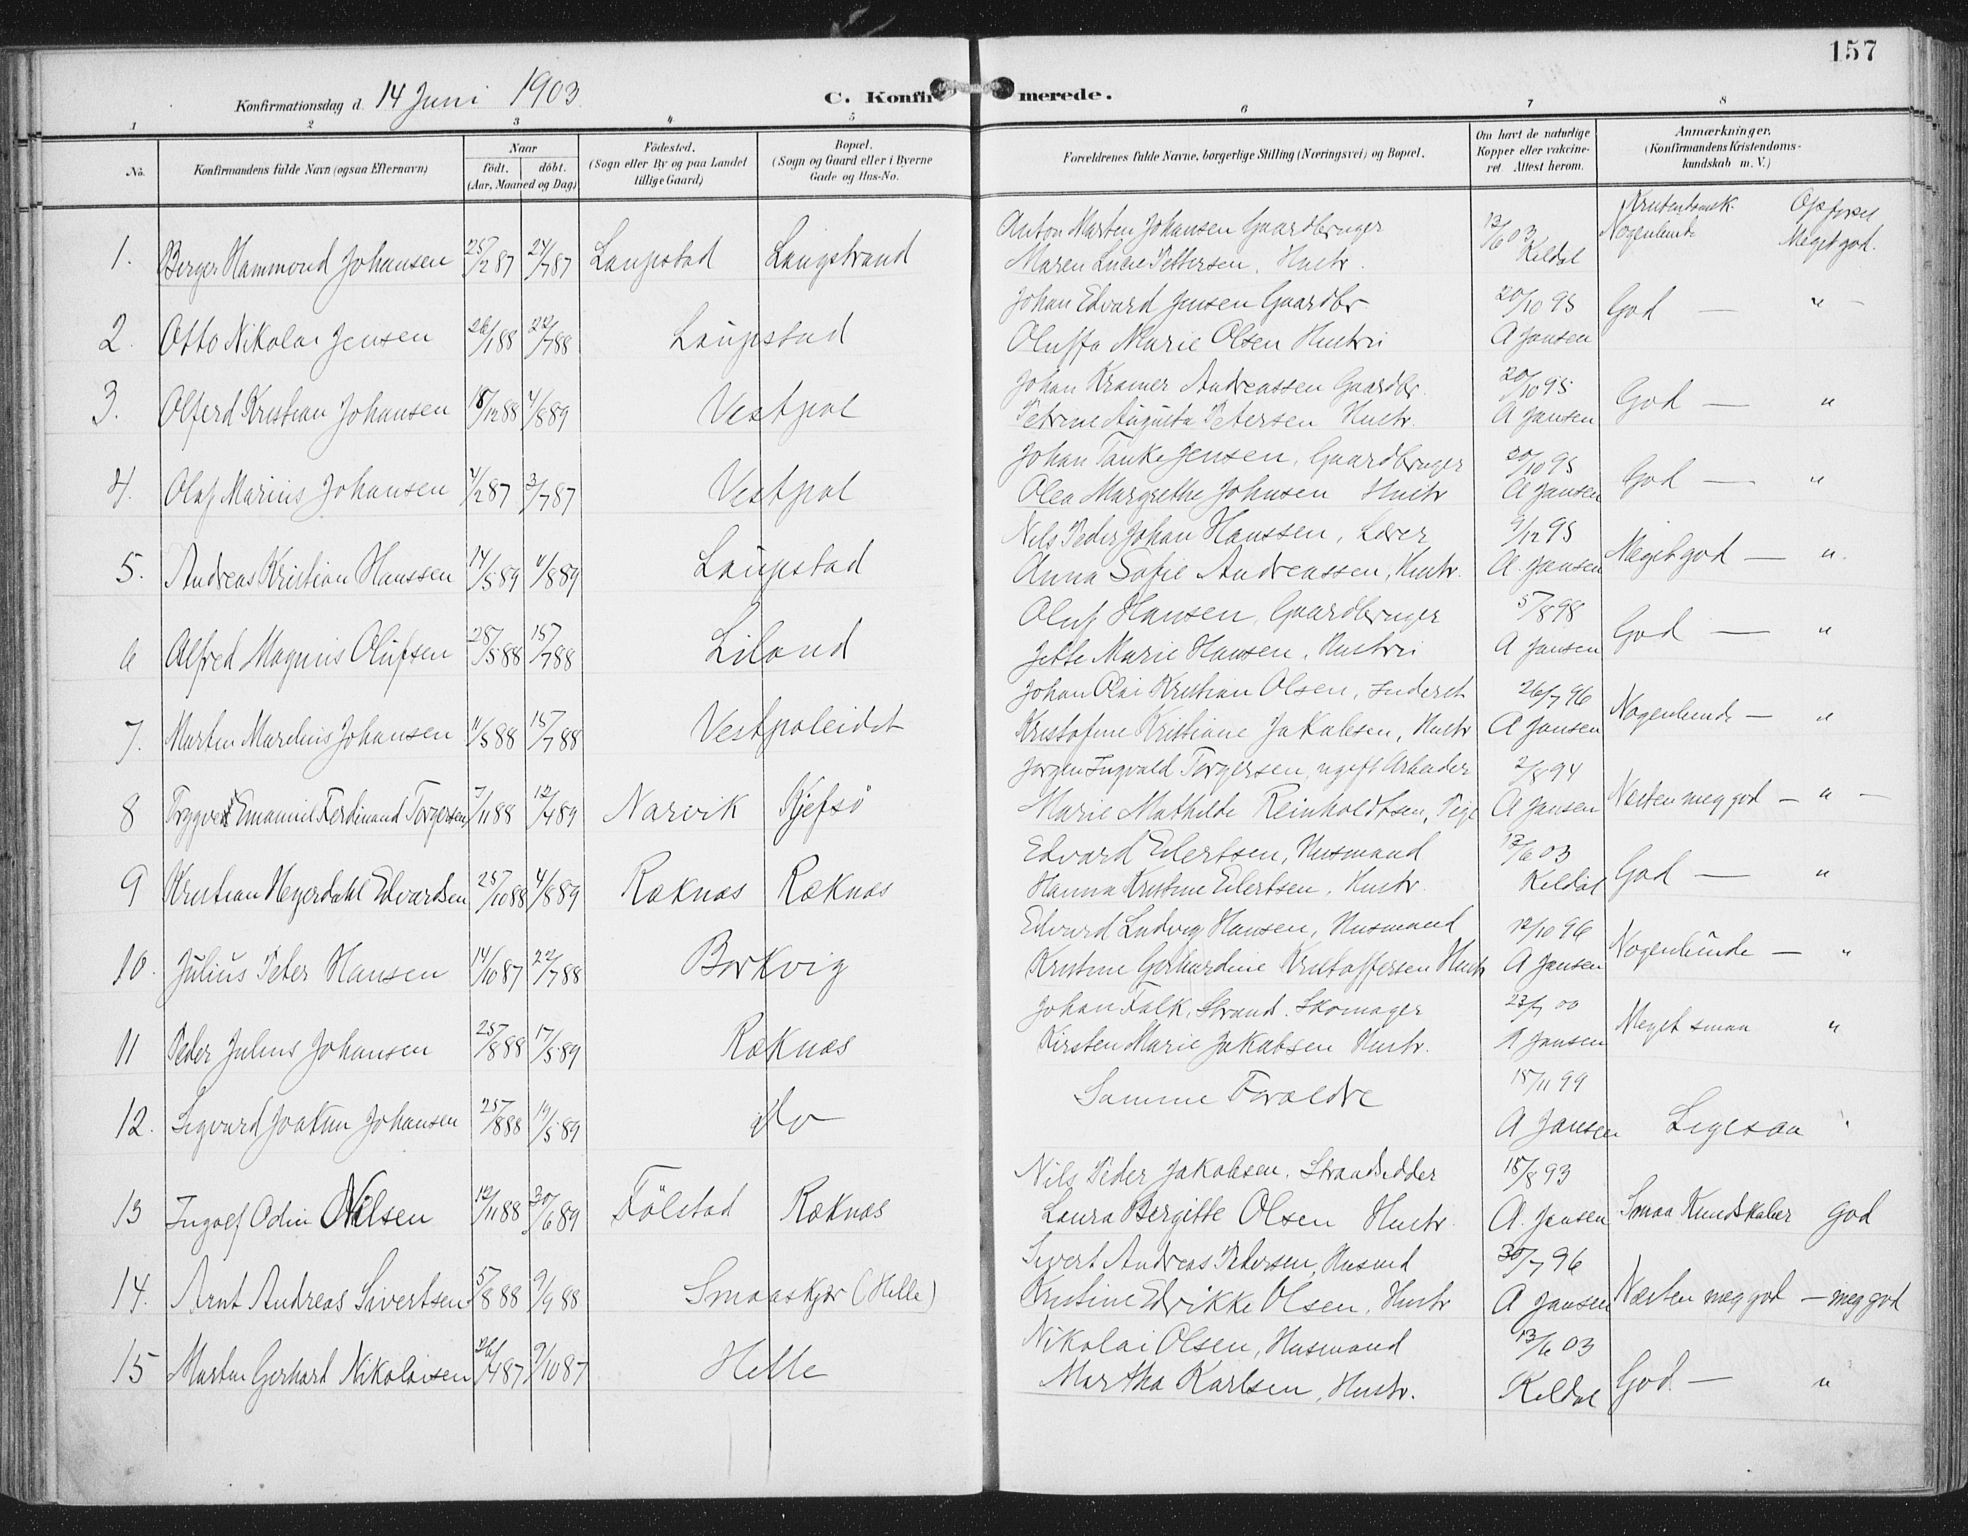 157
Konfirmationsdag d. 14 Juni 1903.
C. Konfirmerede.
1 2 3 4 5 6 7 8
No.
Konfirmandens fulde Navn (ogsaa Efternavn)
Naar
födt. döbt.
(Aar, Maaned og Dag)
Födested.
(Sogn eller By og paa Landet
tillige Gaard)
Bopæl.
(Sogn og Gaard eller i Byerne
Gade og Hus-No.
Forældrenes fulde Navne, borgerlige Stilling (Næringsvei) og Bopæl.
Om havt de naturlige
Kopper eller vaccine-
ret Attest herom.
Anmærkninger.
(Konfirmandens Kristendoms-
kundskab m. V.)
Kristendomsk. Opførsel
Anton Martin Johansen Gaardbruger 13/6 03 Nogenlunde Meget god.
1. Berger Hammond Johansen 25/2 87 24/7 87 Laupstad Laupstrand Maren Pettersen, Hustr. Keldal
Johan Edvard Jensen Gaardbr. 20/10 95 God — " —
2. Otto Nikolai Jensen 26/1 88 22/7 88 Laupstad Oluffa Marie Olsen Hustru A Jansen
Johan Kramer Andreassen Gaardbr. 20/10 95 God — "
3. Alferd Kristian Johansen 18/12 88 4/8 89 Vestpol Petrine Augusta Petersen Hustr. A Jansen
Johan Tanke Jensen, Gaardbruger 20/10 95 God — "
4. Olaf Marius Johansen 4/2 87 3/7 87 Vestpol Olea Margrethe Johnsen Hustr A Jansen
Nils Peder Johan Hanssen, Lærer 9/12 95 Meget god — "
5. Andreas Kristian Hanssen 14/5 89 4/8 89 Laupstad Anna Sofie Andreassen, Hustr. A. Jansen
Oluf Hansen, Gaardbruger 5/8 98 God — "
6 Alfred Magnus Olufsen 28/5 88 15/7 88 Liland Jette Marie Hansen, Hustru A Jansen
Johan Olai Kristian Olsen, Inderst 26/7 96 Nogenlunde — "
7. Martin Marelius Johansen 11/5 88 15/7 88 Vestpoleidet Kristofine Kristiane Jakobsen, Hustr A Jansen
Jørgen Ingvald Torgersen, ugift Arbeider 2/8 94 Næsten meg god — " —
8 Trygve Emanuel Ferdinand Torgersen 3/11 88 12/4 89 Narvik Gjefsö Marie Mathilde Reinholdtsen, Pige A Jansen
Edvard Eilertsen, Husmand 13/6 03 God — "
9 Kristian Heyerdahl Edvardsen 25/10 88 4/8 89 Ræknæs Ræknæs Hanna Kristine Eilertsen, Hustr. Keldal
Edvard Ludvig Hansen, Husmand 12/10 96 Nogenlunde — "
10. Julius Peter Hansen 14/10 87 22/7 88 Borkvig Kristine Gerhardine Kristoffersen Hustr A Jansen
Johan Falk, Strand. Skomager 23/7 00 Meget smaa "
11 Peder Julius Johansen 25/8 88 17/5 89 Ræknæs Kirsten Marie Jakobsen Hustr. A Jansen
Samme Forældre 15/11 99
12. Sigvard Joakim Johansen 25/8 88 19/5 89 do A Jansen Ligesaa "
Nils Peder Jakobsen, Strandsidder 18/8 93
13 Ingolf Odin Nilsen 12/11 88 30/6 89 Fölstad Ræknæs Laura Bergitte Olsen Hustr. A. Jansen Smaa Kundskaber God
Sivert Andreas Pedersen, Husmd 30/7 96
14. Arnt Andreas Sivertsen 5/8 88 9/9 88 Smaaskjær (Helle) Kristine Edrikke Olsen, Hustr A Jansen Næsten meg god — meg god
Nikolai Olsen, Husmand 13/6 03
15 Martin Gerhard Nikolaisen 26/4 87 9/10 87 Helle Martha Karlsen, Hustr. Keldal God — "